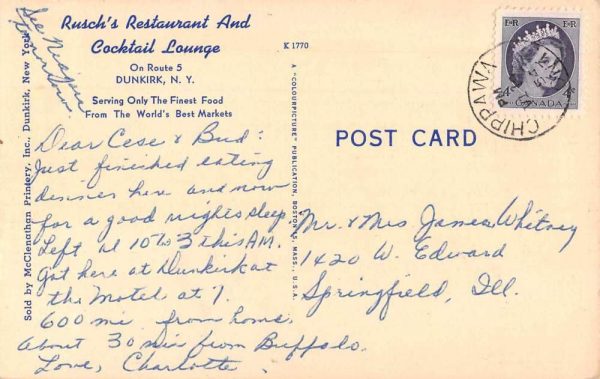 See Niagara
tomorrow
Rusch's Restaurant And
Cocktail Lounge
On Route 5
DUNKIRK, N. Y.
Serving Only The Finest Food
From The World's Best Markets
K 1770
Sold by McClenathan Printery, Inc., Dunkirk, New York
A "COLOURPICTURE" PUBLICATION, BOSTON, MASS., U.S.A.
POST CARD
E R E R
CANADA
CHIPPAWA
PM
Dear Cese & Bud:
Just finished eating
dinner here and now
for a good nights sleep.
Left at 10 to 3 this AM.
Got here at Dunkirk at
the Motel at 7.
600 mi from home.
About 30 mi from Buffalo.
Love, Charlotte.
Mr. & Mrs James Whitney
1420 W. Edward
Springfield, Ill.